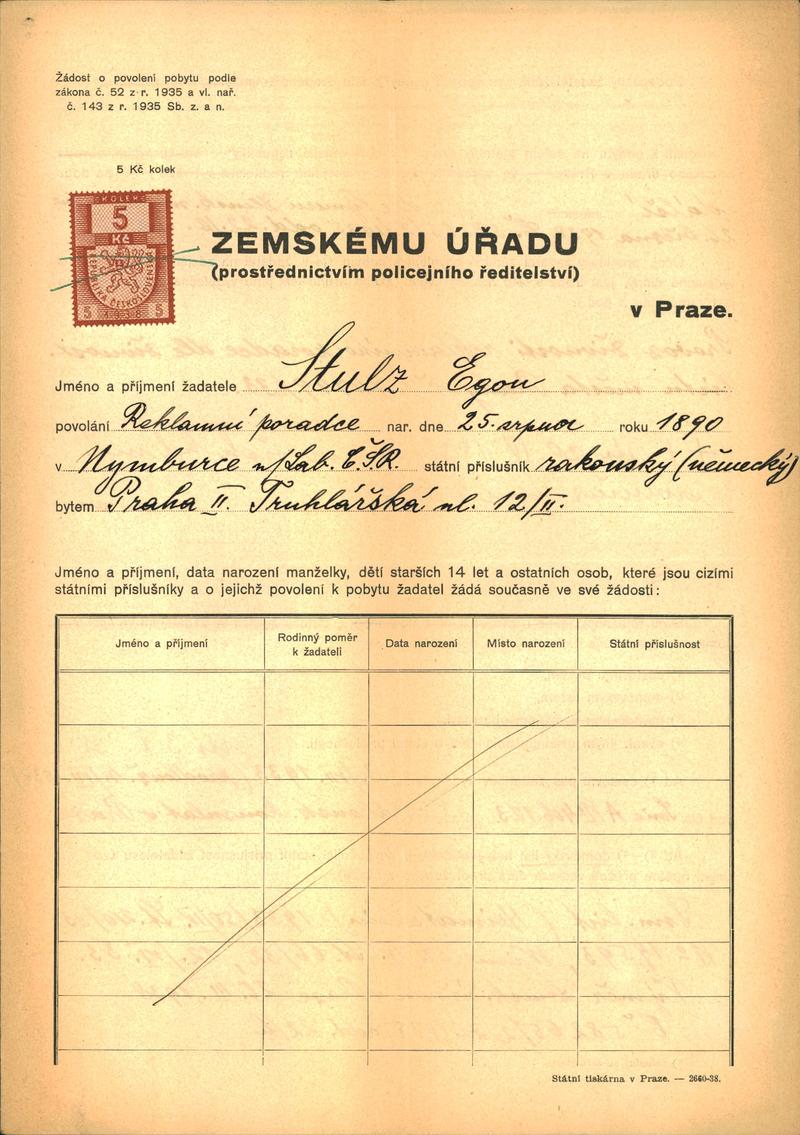 Žádost o povolení pobytu podle
zákona č. 52 z r. 1935 a vl. nař.
č. 143 z r. 1935 Sb. z. a n.
5 Kč kolek
KOLEK
5
Kč
REPUBLIKA ČESKOSLOVENSKÁ
5 1938 5
ZEMSKÉMU ÚŘADU
(prostřednictvím policejního ředitelství)
v Praze.
Jméno a příjmení žadatele Stulz Egon
povolání Reklamní poradce nar. dne 25. srpna roku 1890
v Nymburce n/Lab. Č.S.R. státní příslušník rakouský (německý)
bytem Praha II. Truhlářská ul. 12/II.
Jméno a příjmení, data narození manželky, dětí starších 14 let a ostatních osob, které jsou cizími
státními příslušníky a o jejichž povolení k pobytu žadatel žádá současně ve své žádosti:
Jméno a příjmení Rodinný poměr k žadateli Data narození Místo narození Státní příslušnost
Státní tiskárna v Praze. — 2660-38.